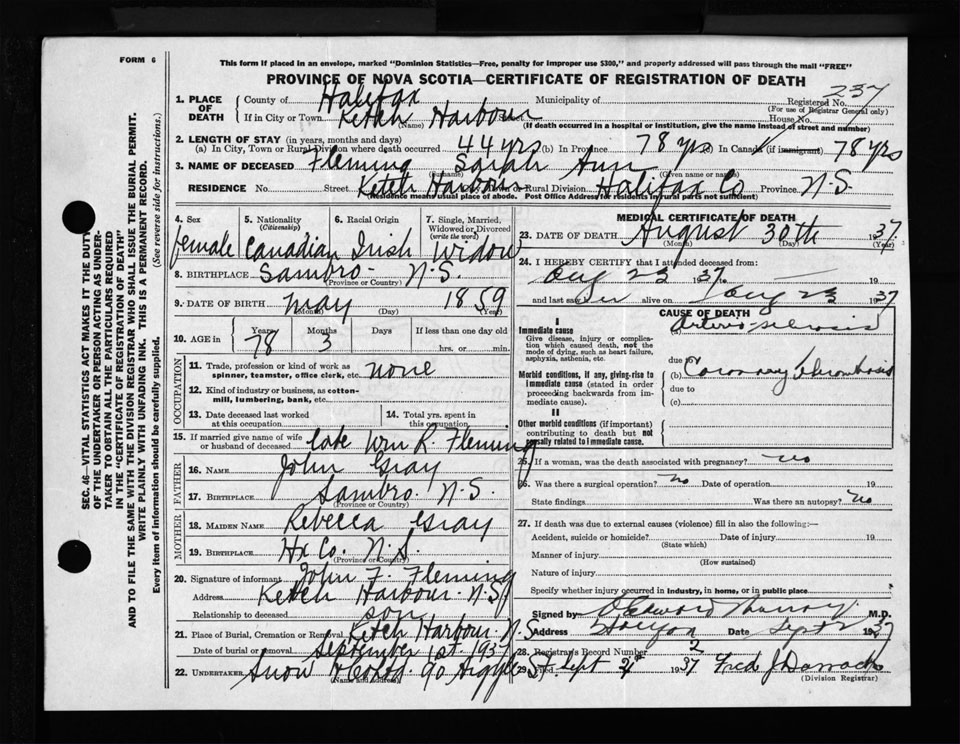 FORM 6
This form if placed in an envelope, marked "Dominion Statistics—Free, penalty for improper use $300," and properly addressed will pass through the mail "FREE"
PROVINCE OF NOVA SCOTIA—CERTIFICATE OF REGISTRATION OF DEATH
SEC. 46—VITAL STATISTICS ACT MAKES IT THE DUTY
OF THE UNDERTAKER OR PERSON ACTING AS UNDER-
TAKER TO OBTAIN ALL THE PARTICULARS REQUIRED
IN THE "CERTIFICATE OF REGISTRATION OF DEATH"
AND TO FILE THE SAME WITH THE DIVISION REGISTRAR WHO SHALL ISSUE THE BURIAL PERMIT.
WRITE PLAINLY WITH UNFADING INK. THIS IS A PERMANENT RECORD.
Every item of information should be carefully supplied. (See reverse side for instructions.)
1. PLACE OF DEATH County of Halifax Municipality of Registered No. 237
(For use of Registrar General only)
If in City or Town Ketch Harbour Street House No.
(Name)
(If death occurred in a hospital or institution, give the name instead of street and number)
2. LENGTH OF STAY (in years, months and days)
(a) In City, Town or Rural Division where death occurred 44 yrs (b) In Province 78 yrs (c) In Canada (if immigrant) 78 yrs
3. NAME OF DECEASED Fleming Sarah Ann
(Surname) (Given name or names)
RESIDENCE No. Street Ketch Harbour City, Town or Rural Division Halifax Co Province N.S.
(Residence means usual place of abode. Post Office Address for residents in rural parts not sufficient)
4. Sex female
5. Nationality (Citizenship) Canadian
6. Racial Origin Irish
7. Single, Married, Widowed or Divorced (write the word) Widow
8. BIRTHPLACE Sambro - N.S.
(Province or Country)
9. DATE OF BIRTH May 1859
(Month) (Day)
10. AGE in Years 78 Months 3 Days If less than one day old hrs. or min.
OCCUPATION
11. Trade, profession or kind of work as spinner, teamster, office clerk, etc. none
12. Kind of industry or business, as cotton-mill, lumbering, bank, etc.
13. Date deceased last worked at this occupation
14. Total yrs. spent in this occupation
15. If married give name of wife or husband of deceased late Wm R. Fleming
FATHER
16. NAME John Gray
17. BIRTHPLACE Sambro. N.S.
(Province or Country)
MOTHER
18. MAIDEN NAME Rebecca Gray
19. BIRTHPLACE Hx Co. N.S.
(Province or Country)
20. Signature of informant John F. Fleming
Address Ketch Harbour. N.S.
Relationship to deceased son
21. Place of Burial, Cremation or Removal Ketch Harbour. N.S.
Date of burial or removal September 1st. 1937
22. UNDERTAKER Snow & Co Ltd. 90 Argyle St.
(Name and Address)
MEDICAL CERTIFICATE OF DEATH
23. DATE OF DEATH August 30th 1937
(Month) (Day) (Year)
24. I HEREBY CERTIFY that I attended deceased from:
Aug 23 1937 to 19
and last saw her alive on Aug 23 1937
CAUSE OF DEATH
I
Immediate cause
Give disease, injury or complication which caused death, not the mode of dying, such as heart failure, asphyxia, asthenia, etc.
(a) Arterio-sclerosis
due to
Morbid conditions, if any, giving-rise to immediate cause (stated in order proceeding backwards from immediate cause).
(b) Coronary Thrombosis
due to
(c)
II
Other morbid conditions (if important) contributing to death but not causally related to immediate cause.
25. If a woman, was the death associated with pregnancy? no
26. Was there a surgical operation? no Date of operation 19
State findings Was there an autopsy? no
27. If death was due to external causes (violence) fill in also the following:—
Accident, suicide or homicide? Date of injury 19
(State which)
Manner of injury
(How sustained)
Nature of injury
Specify whether injury occurred in industry, in home, or in public place
Signed by Edward M.D.
Address Halifax Date Sept 2 1937
28. Registrar's Record Number 2
29. Filed Sept 2 1937 Fred J Darrach
(Division Registrar)